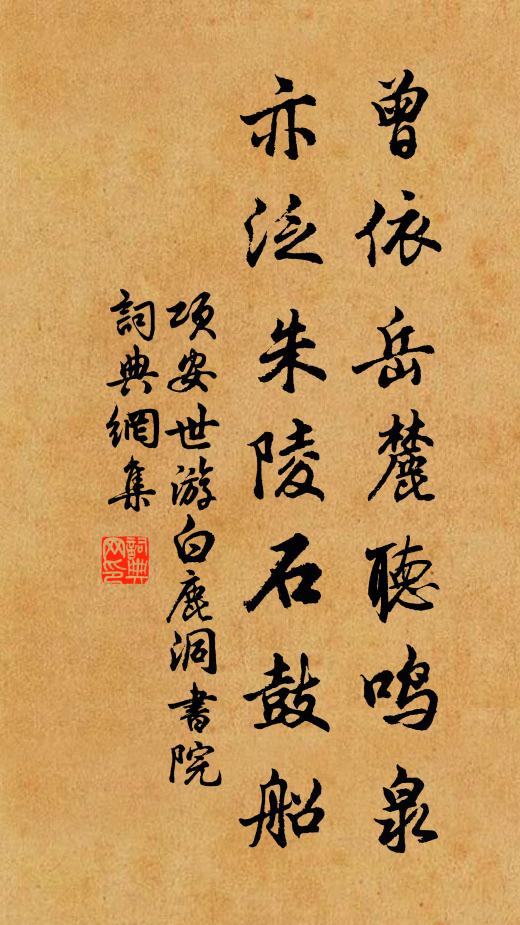 曾依岳麓聽鸣泉
亦泛朱陵石鼓船
项安世游白鹿洞書院
詞典網集
詞典
网印